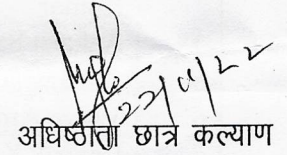 22/01/22
अधिष्ठाता छात्र कल्याण